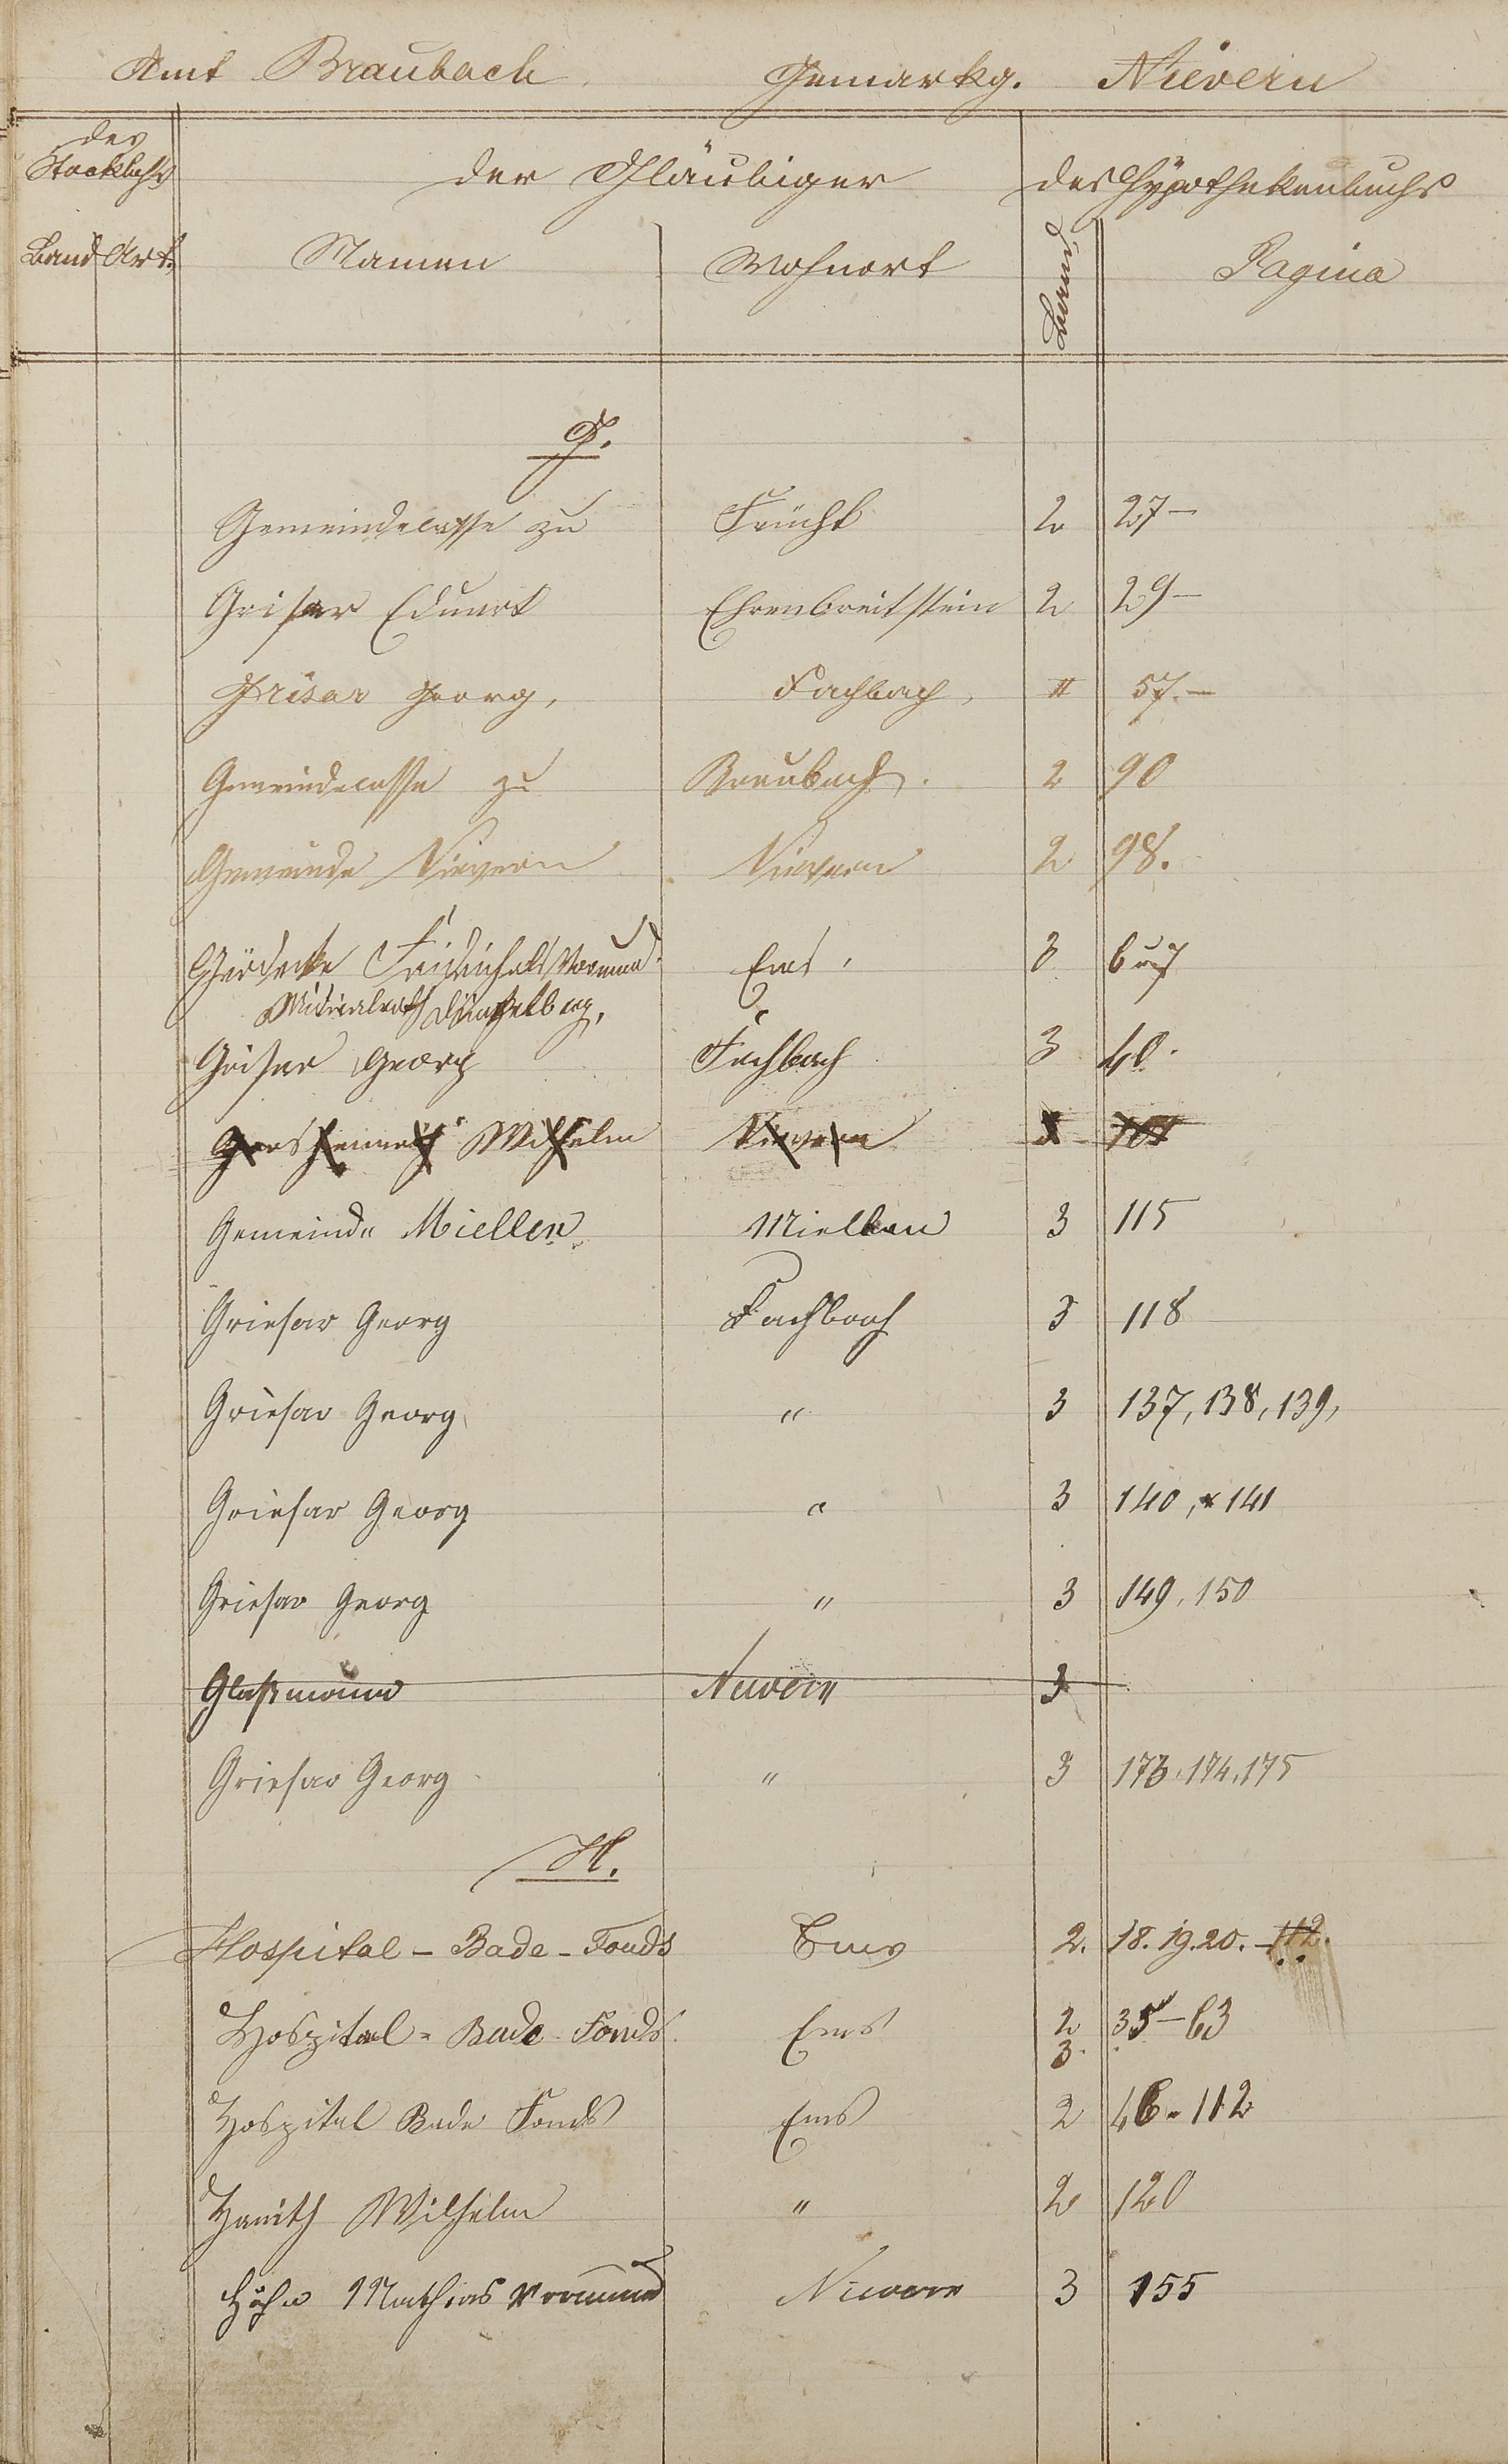 Amt Braubach Gemarkg. Nievern
des Stockbuchs der Gläubiger des Hypothekenbuchs
Band Art. Namen Wohnort Band Pagina
G.
Gemeindecasse zu Frücht 2 27 —
Griesar Eduard Ehrenbreitstein 2 29 —
Grisar Georg, Fachbach, II 57. —
Gemeindecasse zu Braubach. 2 90
Gemeinde Nievern Nievern 2 98.
Gördecke Friedrich als Vormund Ems, 3 6 u 7
Medicinalrath
Griesar Georg Fachbach 3 40.
Wilhelm Nievern 3 101
Gemeinde Miellen Miellen 3 115
Griesar Georg Fachbach 3 118
Griesar Georg " 3 137, 138, 139,
Griesar Georg " 3 140, x 141
Griesar Georg " 3 149, 150
Glaßmann Nievern 3
Griesar Georg " 3 173, 174, 175
H.
Hospital - Bade - Fonds Ems 2. 18. 19. 20. - 112.
Hospital - Bade - Fonds. Ems 2 35 — 63
3.
Hospital Bade Fonds Ems 2 46 - 112
Wilhelm " 2 120
Höhn Mathias Vormund Nievern 3 155